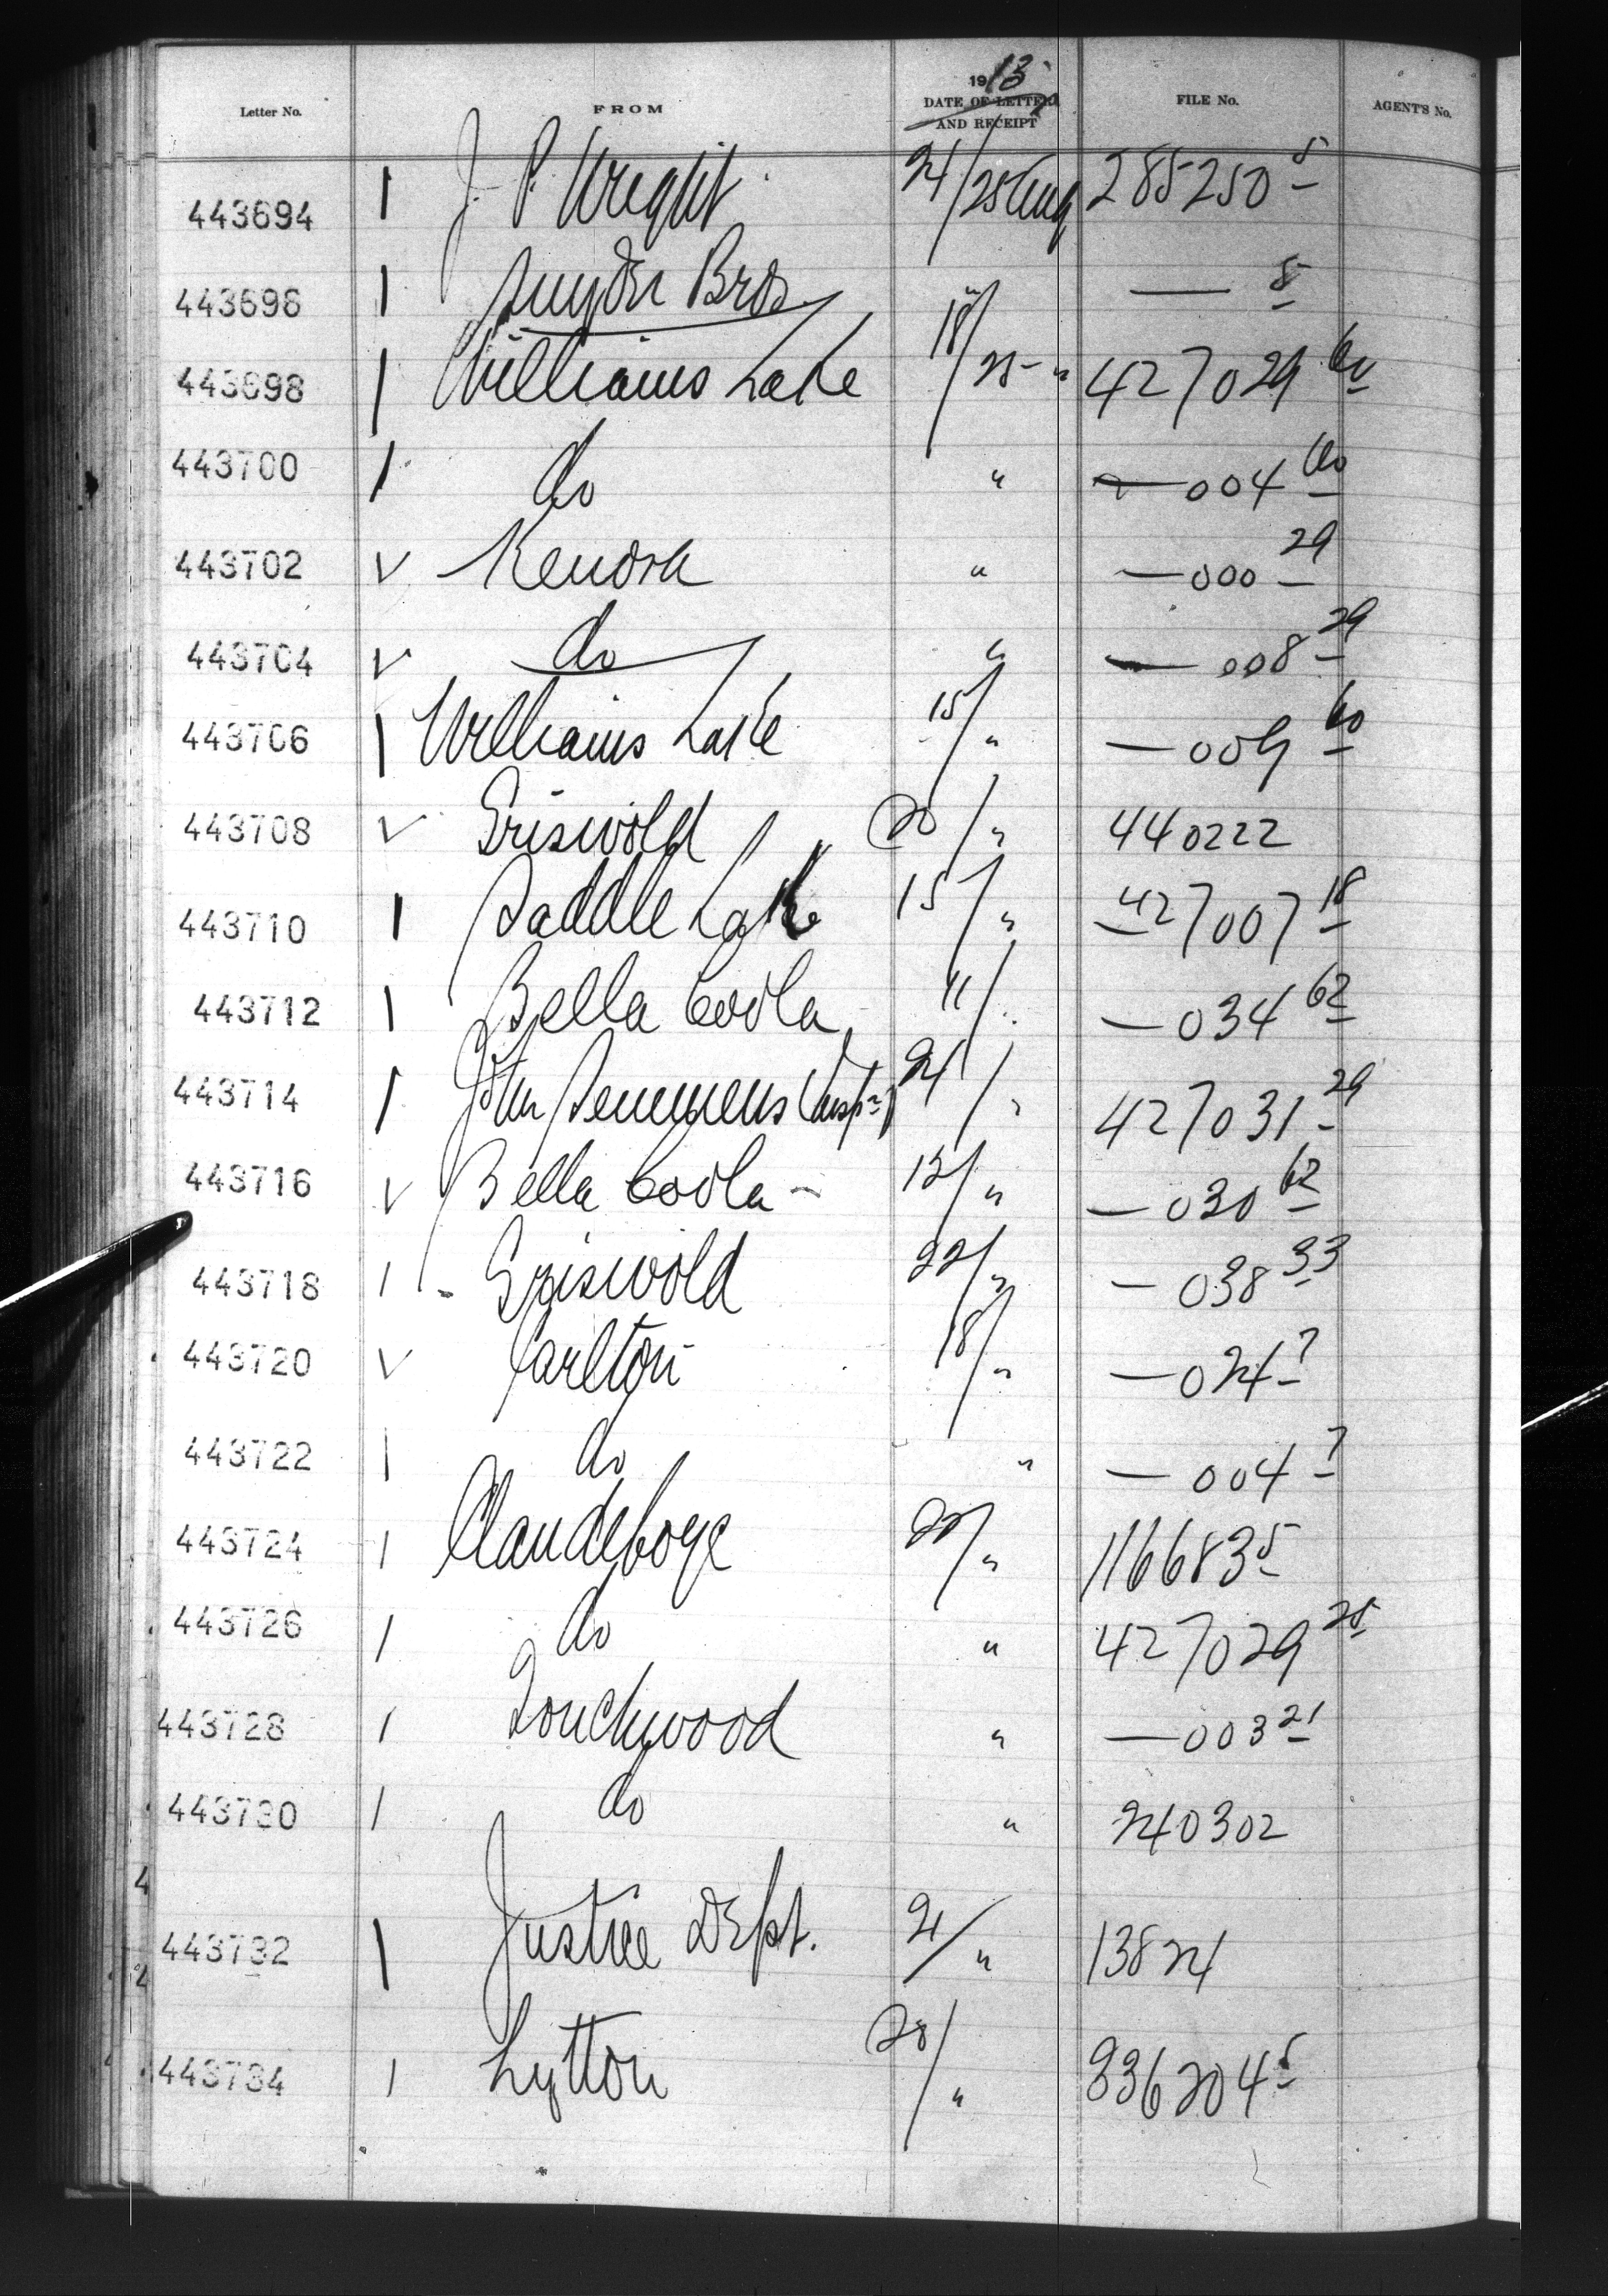 1913
Letter No. FROM DATE OF LETTER AND RECEIPT FILE No. AGENT'S No.
443694 1 J. P. Wright 21/25 Aug 285250 5
443696 1 Snyder Bros " — 5
443698 1 Williams Lake 18/25 " 427029 60
443700 1 do " — 004 60
443702 v Kenora " — 000 29
443704 v do " — 008 29
443706 1 Williams Lake 15/ " — 009 60
443708 v Griswold 20/ " 440222
443710 1 Saddle Lake 15/ " 427007 18
443712 1 Bella Coola 11/ — 034 62
443714 1 John Semmens (Insp r) 21/ " 427031 29
443716 v Bella Coola 12/ " — 030 62
443718 1 Griswold 22/ " — 038 33
443720 v Carlton 18/ " — 024 7
443722 1 do " — 004 7
443724 1 Clandeboye 22/ " 116683 5
443726 1 do " 427029 25
443728 1 Touchwood " — 003 21
443730 1 do " 240302
443732 1 Justice Dept. 21/ " 13824
443734 1 Lytton 20/ " 336204 5